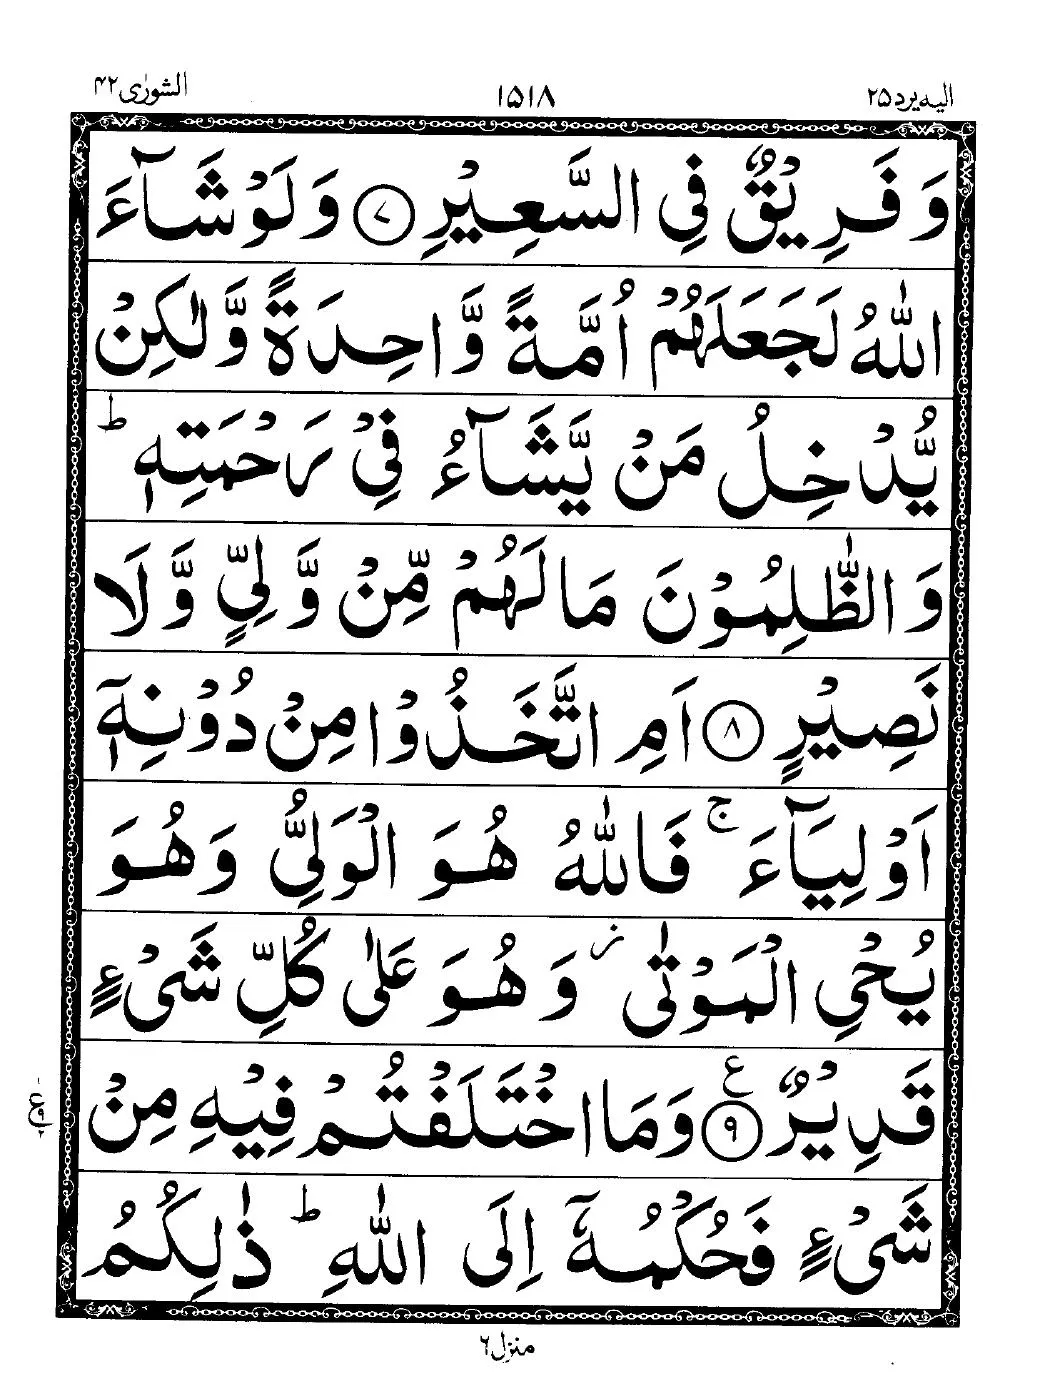 الیه یرد ۲۵ ۱۵۱۸ الشورٰی ۴۲
وَ فَرِیْقٌ فِی السَّعِیْرِ ﴿۷﴾ وَ لَوْ شَآءَ
اللّٰهُ لَجَعَلَهُمْ اُمَّةً وَّاحِدَةً وَّلٰکِنْ
یُّدْخِلُ مَنْ یَّشَآءُ فِیْ رَحْمَتِهٖ ؕ
وَ الظّٰلِمُوْنَ مَا لَهُمْ مِّنْ وَّلِیٍّ وَّ لَا
نَصِیْرٍ ﴿۸﴾ اَمِ اتَّخَذُوْا مِنْ دُوْنِهٖۤ
اَوْلِیَآءَ ۚ فَاللّٰهُ هُوَ الْوَلِیُّ وَ هُوَ
یُحْیِ الْمَوْتٰی ؗ وَ هُوَ عَلٰی کُلِّ شَیْءٍ
قَدِیْرٌ ﴿۹﴾ ع وَ مَا اخْتَلَفْتُمْ فِیْهِ مِنْ
شَیْءٍ فَحُکْمُهٗۤ اِلَی اللّٰهِ ؕ ذٰلِکُمُ
منزل ۶